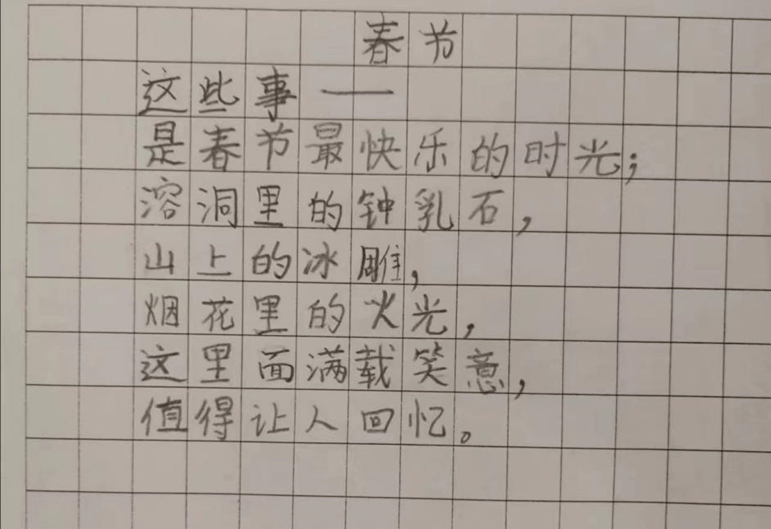 春节
这些事——
是春节最快乐的时光；
溶洞里的钟乳石，
山上的冰雕，
烟花里的火光，
这里面满载笑意，
值得让人回忆。